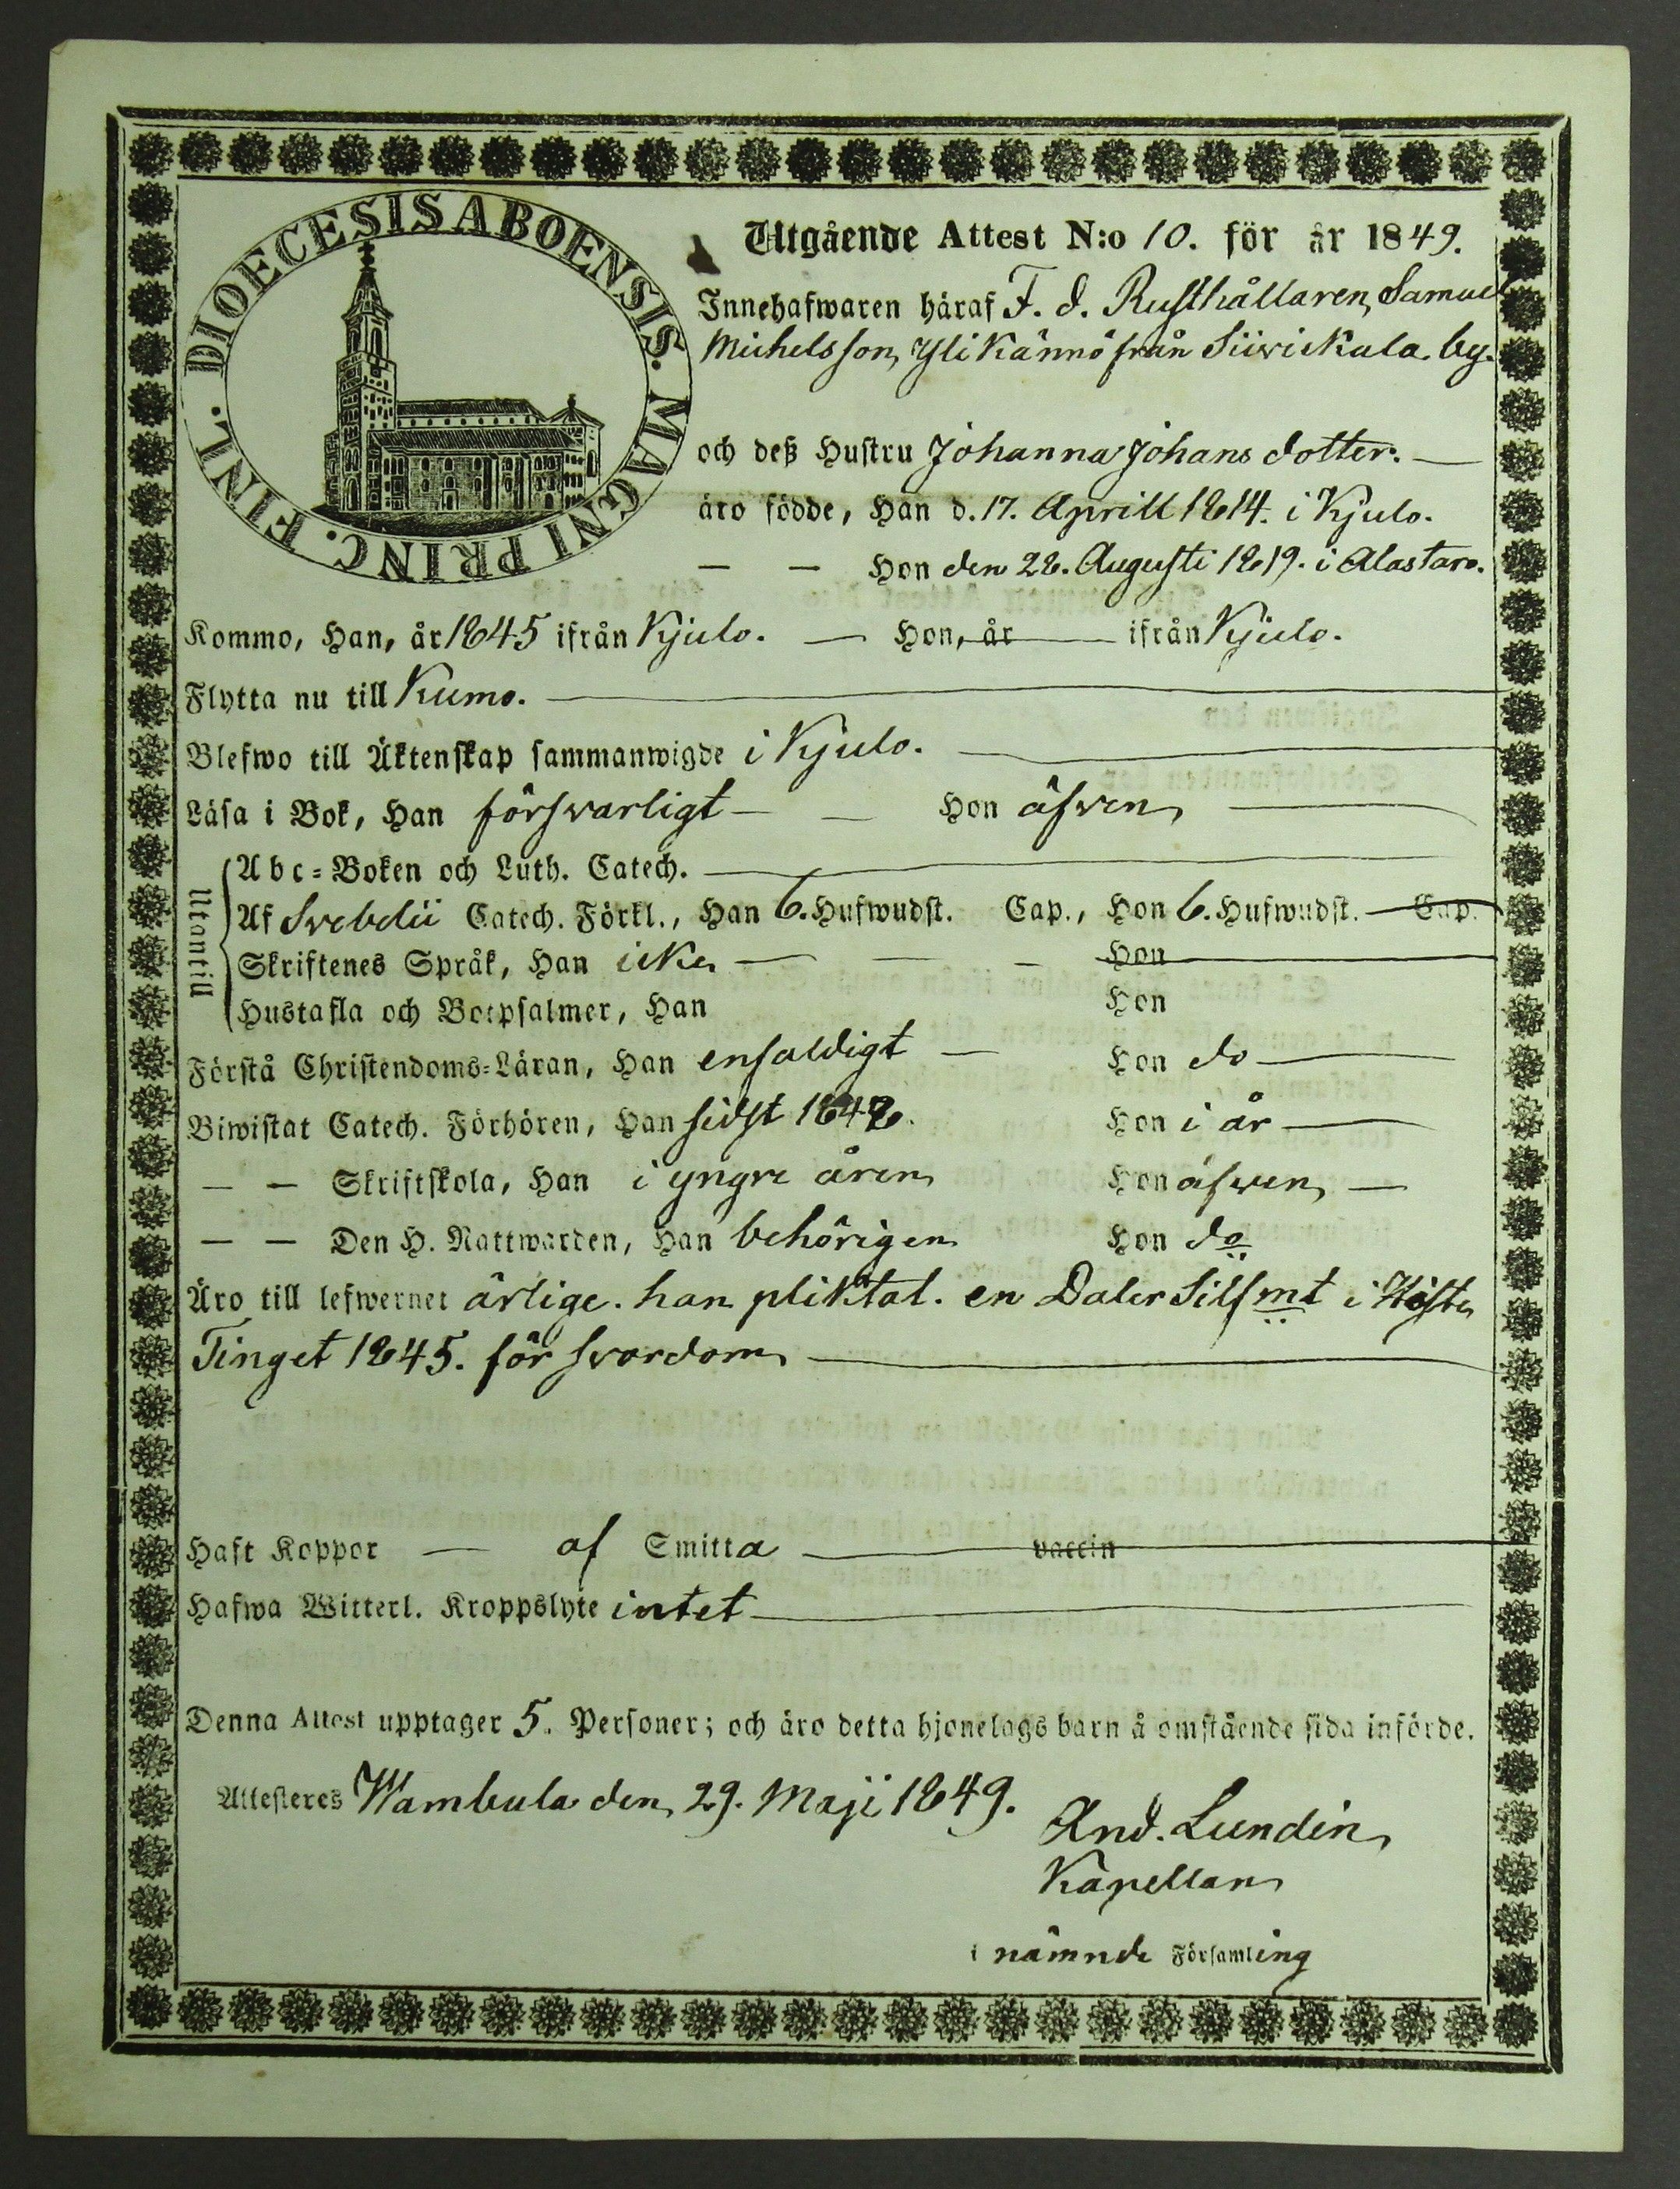 DIOECESIS ABOENSIS. MAGNI PRINC. FINL.
Utgående Attest N:o 10. för år 1849.
Innehafwaren häraf F. d. Rusthållaren, Samuel
Michelsson, Yli Kännö från Siiwikkala by.
och deß Hustru Johanna Johans dotter. —
äro födde, Han d. 17. Aprill 1814. i Kjulo.
— — Hon den 28. Augusti 1819. i Alastaro.
Kommo, Han, år 1845 ifrån Kjulo. — Hon, år — ifrån Kjulo.
Flytta nu till Kumo. —
Blefwo till Äktenskap sammanwigde i Kjulo. —
Läsa i Bok, Han försvarligt — — Hon äfven —
Utantill
Abc-Boken och Luth. Catech. —
Af Svebelii Catech. Förkl., Han 6. Hufwudst. Cap., Hon 6. Hufwudst. — Cap.
Skriftenes Språk, Han icke — — — Hon —
Hustafla och Botpsalmer, Han Hon
Förstå Christendoms-Läran, Han enfaldigt — Hon do —
Biwistat Catech. Förhören, Han sidst 1848. Hon i år —
— — Skriftskola, Han i yngre åren Hon äfven, —
— — Den H. Nattwarden, Han behörigen Hon do
Äro till lefwernet ärlige. han pliktat. en Daler Silfmt i Höste
Tinget 1845. för svordom —
Haft Koppor — af Smitta — vaccin
Hafwa Witterl. Kroppslyte intet —
Denna Attest upptager 5. Personer; och äro detta hjonelags barn å omstående sida införde.
Attesteres Wambula den 29. Maji 1849.
And. Lundén
Kapellan
i nämnde Församling